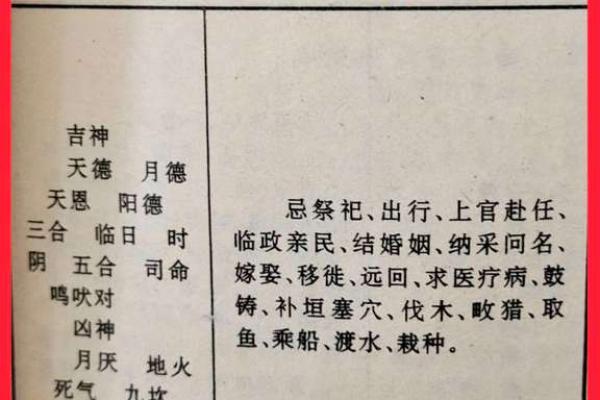 吉神
天德 月德
天恩 阳德
三合 临日 时
阴 五合 司命
鸣吠对
凶神
月厌 地火
死气 九坎
忌祭祀、出行、上官赴任、
临政亲民、结婚姻、纳采问名、
嫁娶、移徙、远回、求医疗病、鼓
铸、补垣塞穴、伐木、畋猎、取
鱼、乘船、渡水、栽种。